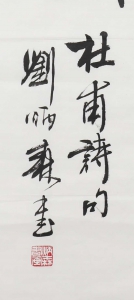 杜甫詩句
劉炳森書